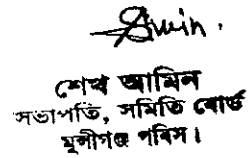 Amin.
শেখ আমিন
সভাপতি, সমিতি বোর্ড
মুন্সীগঞ্জ পবিস।